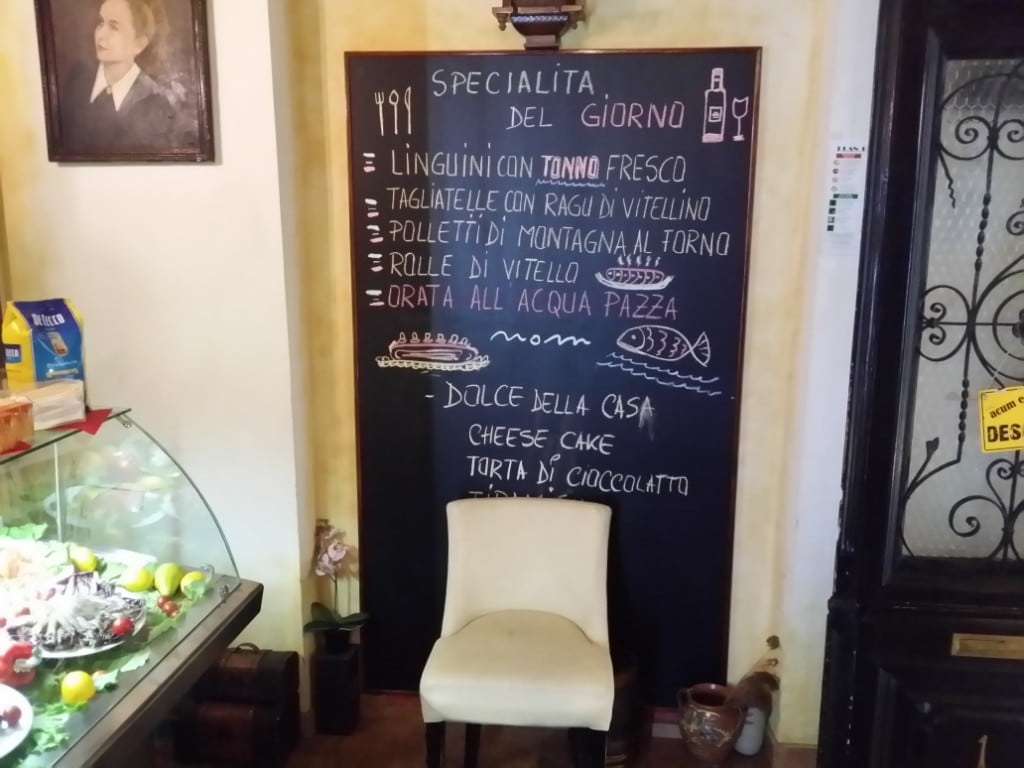 SPECIALITA
DEL GIORNO
LINGUINI CON TONNO FRESCO
TAGLIATELLE CON RAGU DI VITELLINO
POLLETTI DI MONTAGNA AL FORNO
ROLLE DI VITELLO
ORATA ALL ACQUA PAZZA
- DOLCE DELLA CASA
CHEESE CAKE
TORTA DI CIOCCOLATTO
DE CECCO
acum e
DES
1